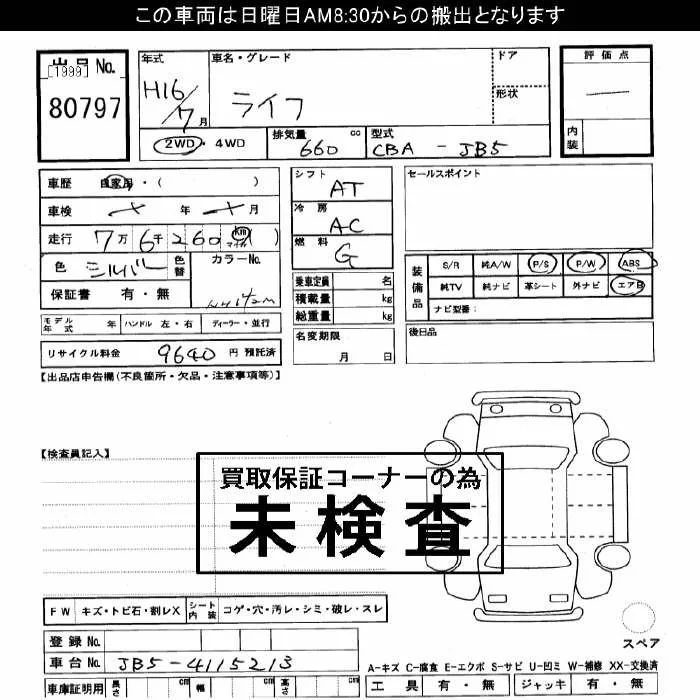 この車両は日曜日AM8:30からの搬出となります
出品No.
[1999]
80797
年式
H16/7月
車名・グレード
ライフ
ドア
形状
評価点
内装
2WD・4WD
排気量 660 cc
型式 CBA - JB5
車歴 自家用・( )
車検 年 月
走行 7万6千260 km マイル ( )
色 シルバー 色替
カラーNo.
保証書 有・無
モデル年式 年 ハンドル 左・右 ディーラー・並行
リサイクル料金 9640 円 預託済
シフト AT
冷房 AC
燃料 G
乗車定員 名
積載量 kg
総重量 kg
名変期限
月 日
セールスポイント
装備品
S/R 純A/W P/S P/W ABS
純TV 純ナビ 革シート 外ナビ エアB
ナビ型番:
後日品
【出品店申告欄(不良箇所・欠品・注意事項等)】
【検査員記入】
買取保証コーナーの為
未検査
FW キズ・トビ石・割レX シート内装 コゲ・穴・汚レ・シミ・破レ・スレ
登録No.
車台No. JB5-4115213
車庫証明用 長さ cm 幅 cm 高さ cm
スペア
A-キズ C-腐食 E-エクボ S-サビ U-凹ミ W-補修 XX-交換済
工具 有・無 ジャッキ 有・無